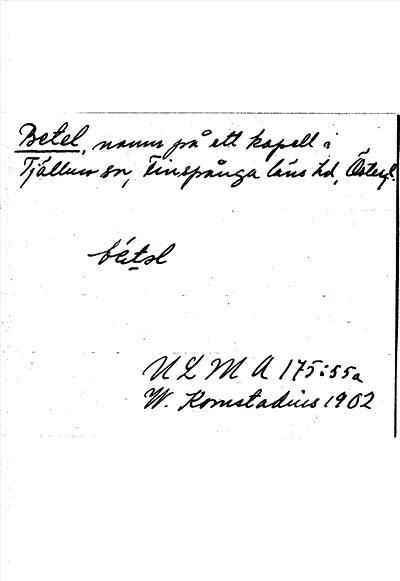 Betel, namn på ett kapell i
Tjällmo sn, Finspånga läns hd, Östergl.
bétəl
ULMA 175:55a
W. Komstadius 1902